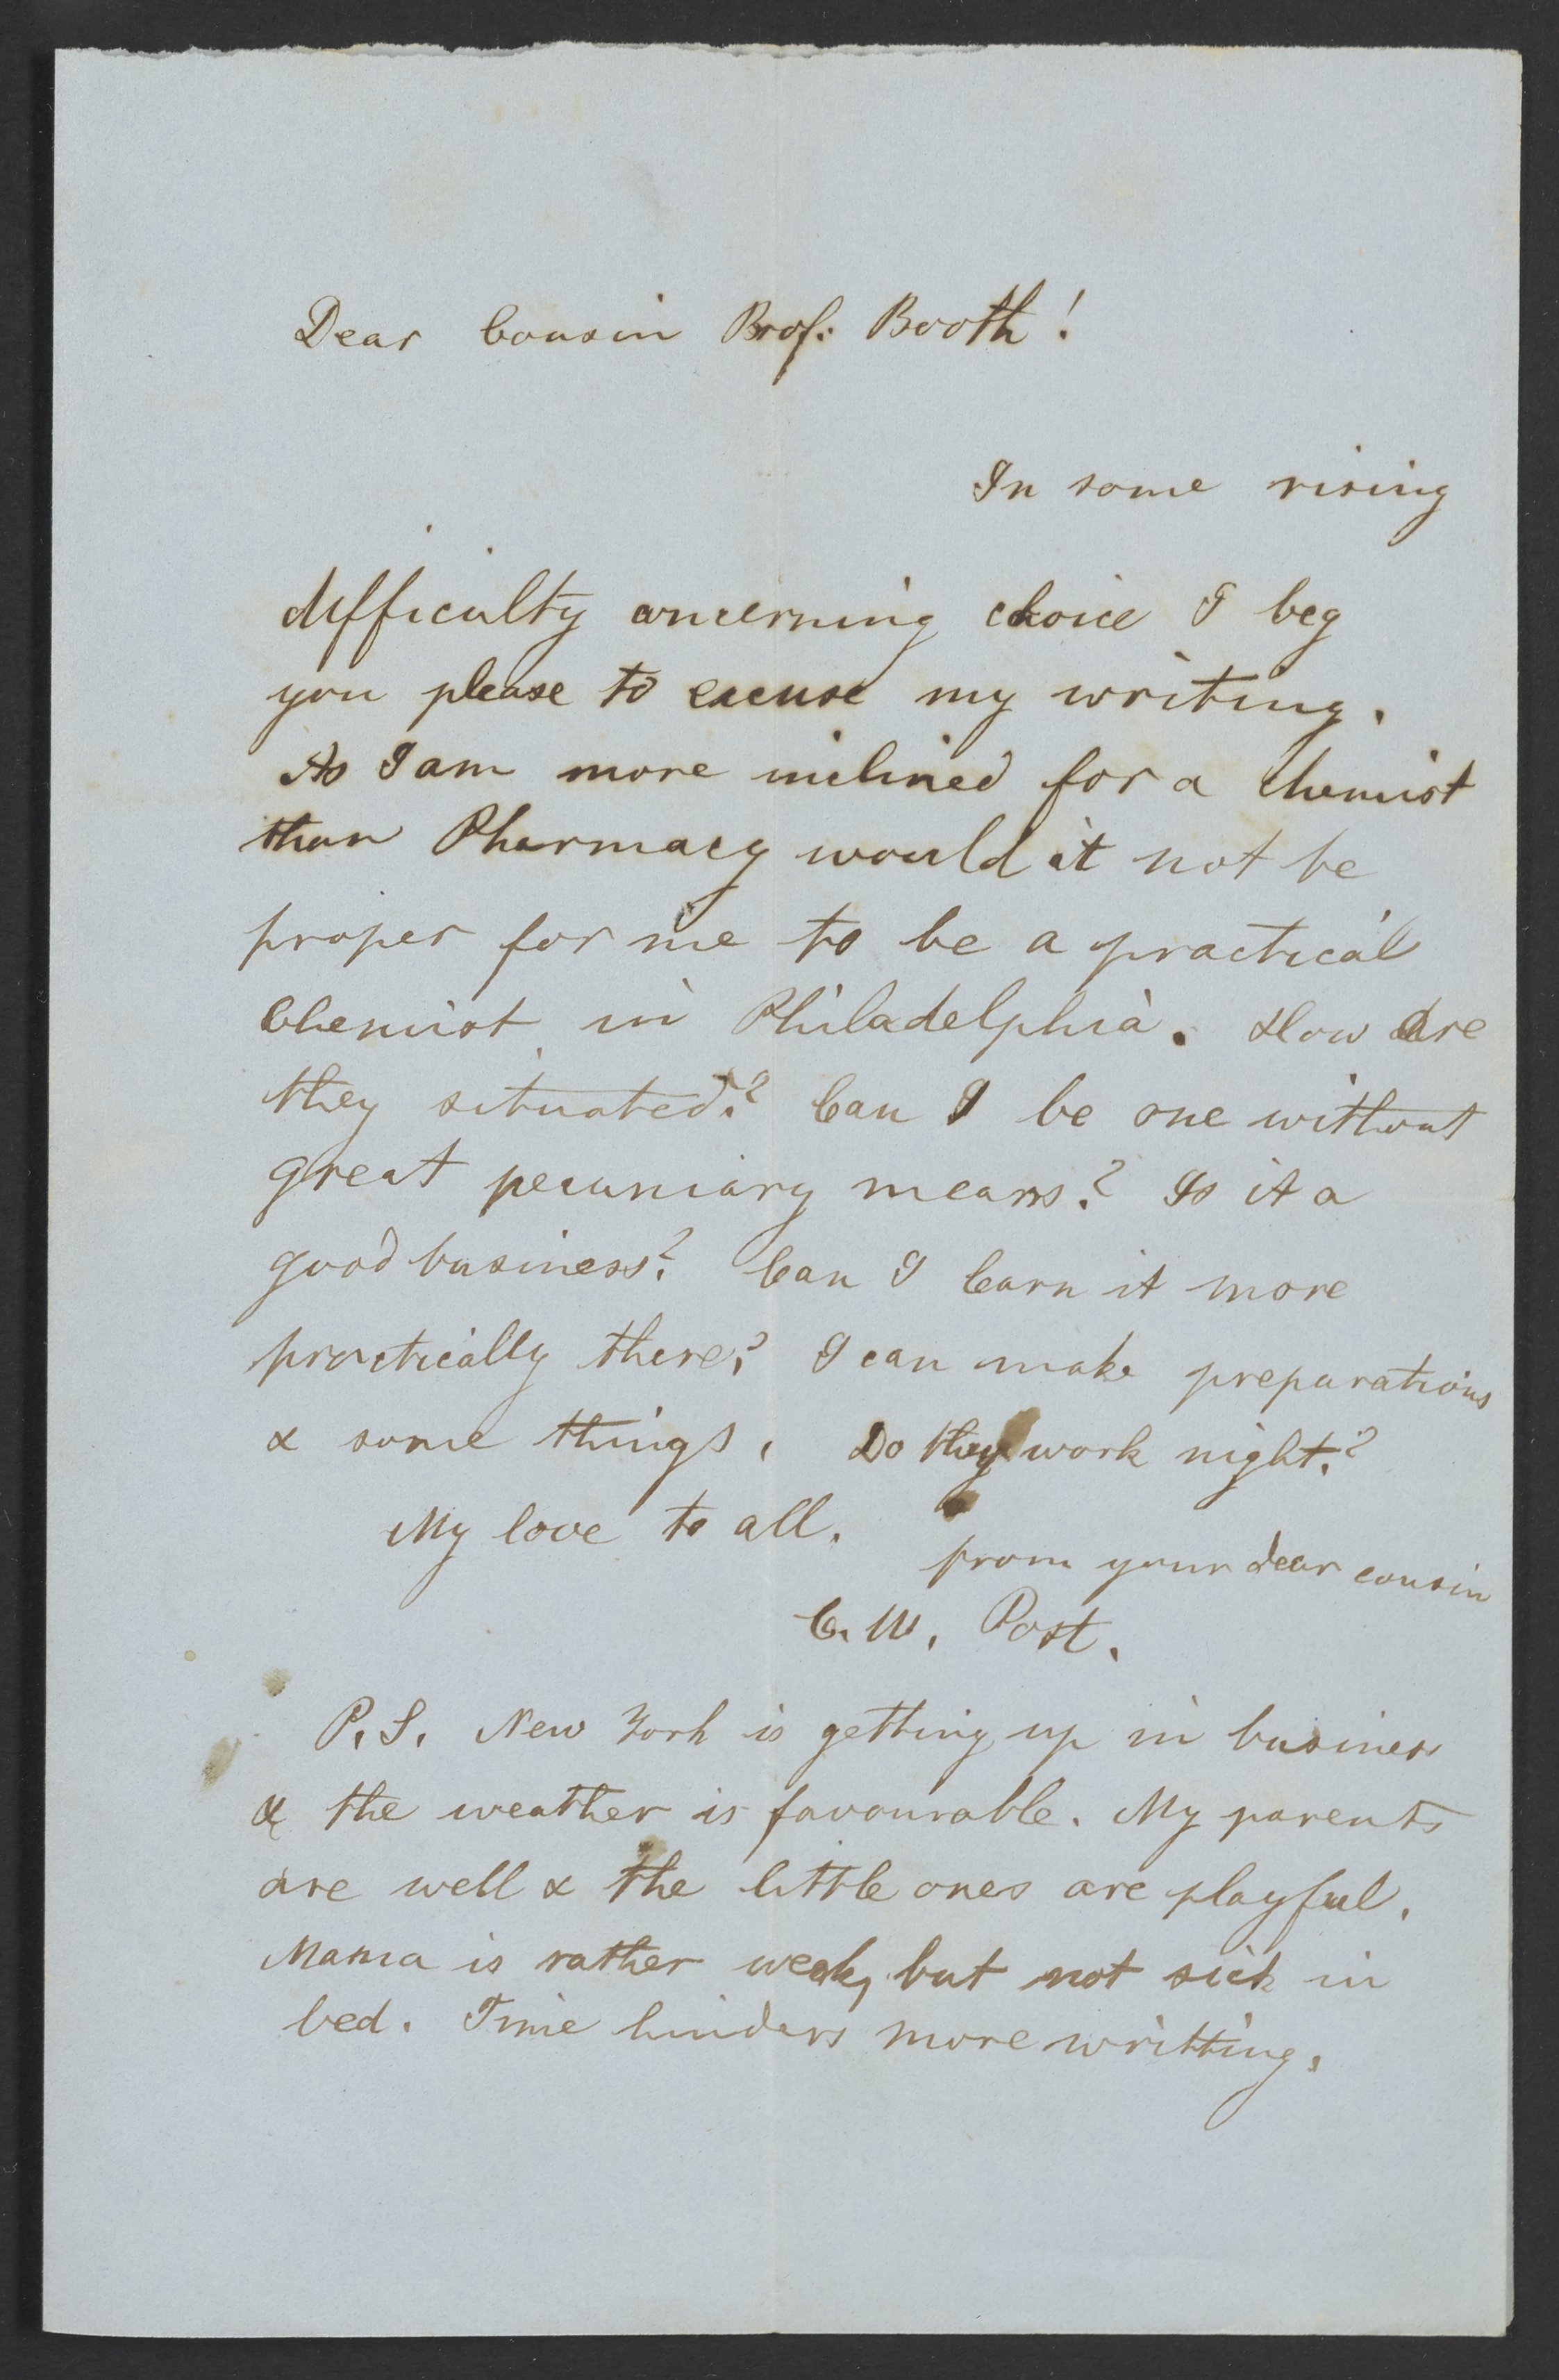 Dear Cousin Prof: Booth!
In some rising
difficulty concerning choice I beg
you please to excuse my writing.
As I am more inclined for a chemist
than Pharmacy would it not be
proper for me to be a practical
Chemist in Philadelphia. How are
they situated? Can I be one without
great pecuniary means? Is it a
good business? Can I learn it more
practically there? I can make preparations
& some things. Do they work night?
My love to all.
from your dear cousin
C. W. Post.
P. S. New York is getting up in business
& the weather is favourable. My parents
are well & the little ones are playful.
Mama is rather weak, but not sick in
bed. Time hinders more writting.